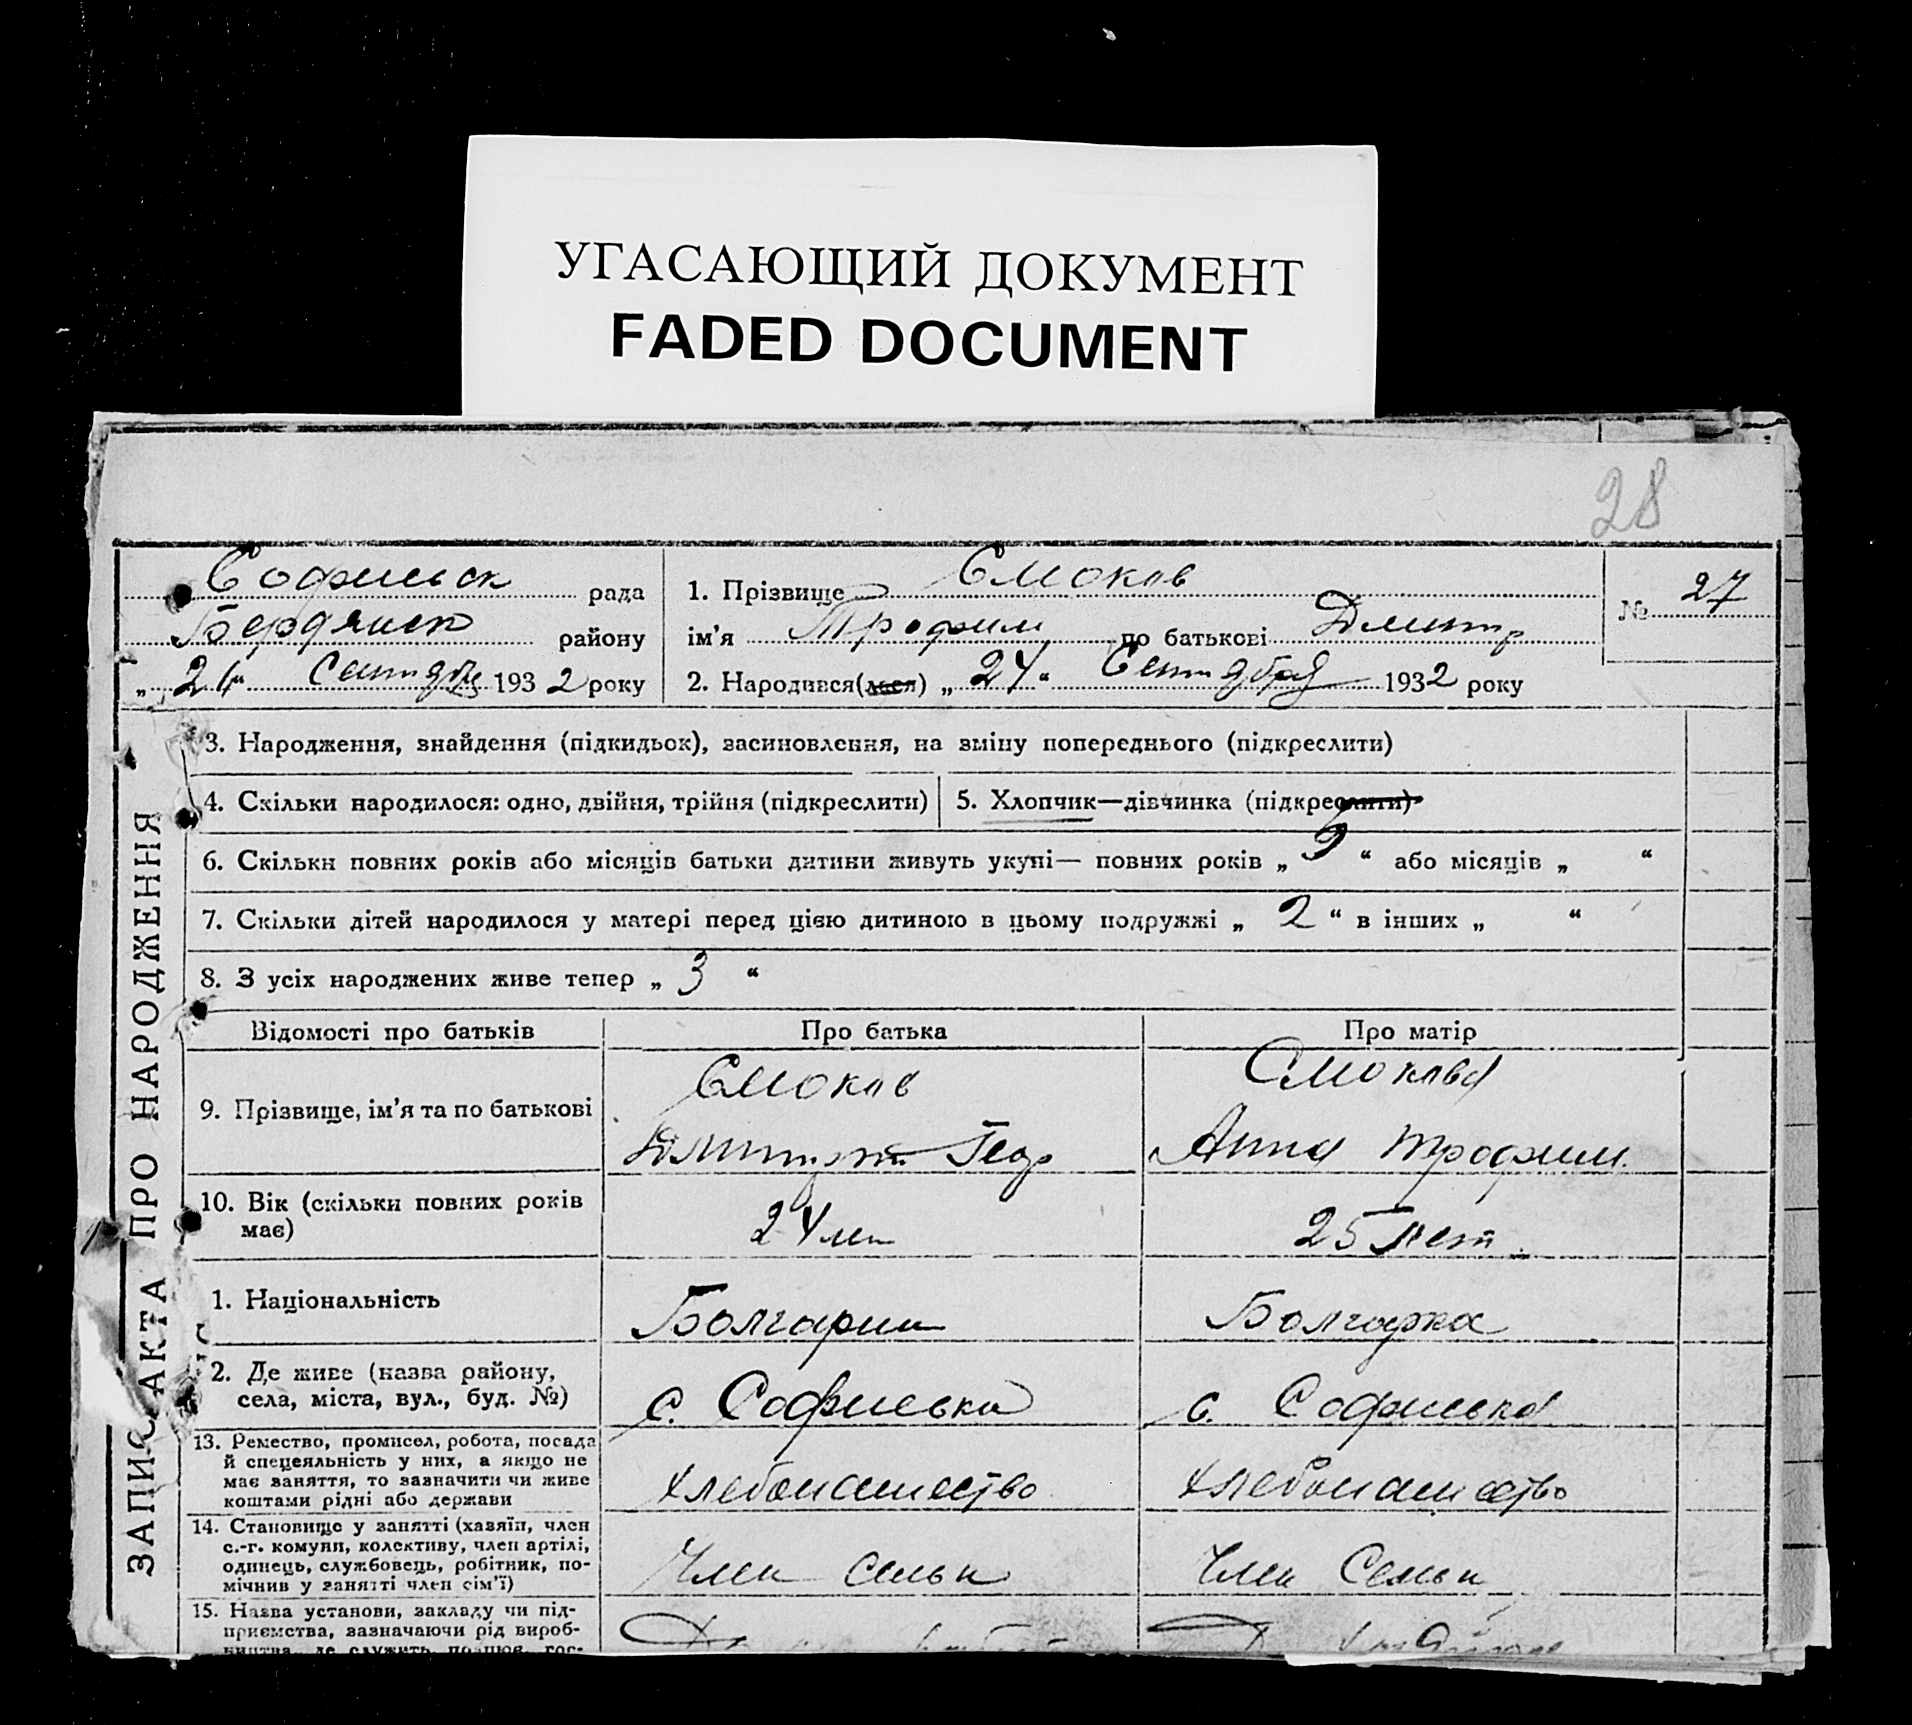 УГАСАЮЩИЙ ДОКУМЕНТ
FADED DOCUMENT
28
Софиевск рада
Бердянск району
„ 24 “ Сентябр 1932 року
1. Прізвище Смоков
ім’я Трофим по батькові Дмитр
2. Народився(лася) „ 24 “ Сентября 1932 року
№ 27
ЗАПИС АКТА ПРО НАРОДЖЕННЯ
3. Народження, знайдення (підкидьок), засиновлення, на зміну попереднього (підкреслити)
4. Скільки народилося: одно, двійня, трійня (підкреслити)
5. Хлопчик—дівчинка (підкреслити)
6. Скільки повних років або місяців батьки дитини живуть укупі— повних років „ 9 “ або місяців „ “
7. Скільки дітей народилося у матері перед цією дитиною в цьому подружжі „ 2 “ в інших „ “
8. З усіх народжених живе тепер „ 3 “
Відомості про батьків Про батька Про матір
9. Прізвище, ім’я та по батькові
Смоков
Дмитрий Геор
Смокова
Анна Трофим.
10. Вік (скільки повних років
має)
24 лет
25 лет
1. Національність
Болгарин
Болгарка
2. Де живе (назва району,
села, міста, вул., буд. №)
с. Софиевка
с. Софиевка
13. Ремество, промисел, робота, посада
й спецеяльність у них, а якщо не
має заняття, то зазначити чи живе
коштами рідні або держави
хлебопашество
хлебопашество
14. Становище у занятті (хазяїн, член
с.-г. комуни, колективу, член артілі,
одинець, службовець, робітник, по-
мічник у занятті член сім’ї)
Член семьи
Член Семьи
15. Назва установи, закладу чи під-
приємства, зазначаючи рід вироб-
ництва, де служить, працює, гос-